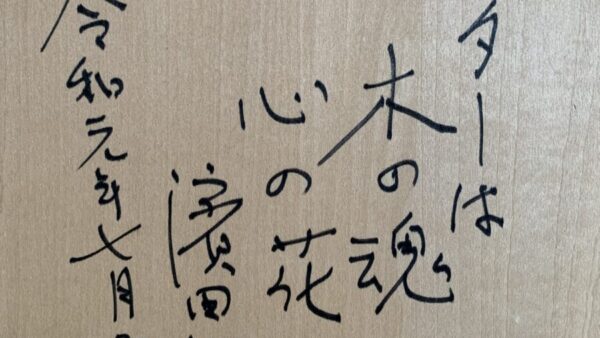 ターは
木の魂
心の花
濱田
令和元年七月